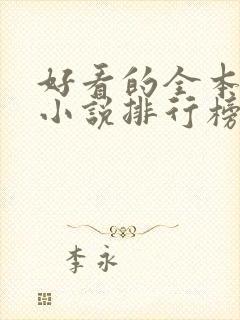 好看的全本
小说排行榜
李永